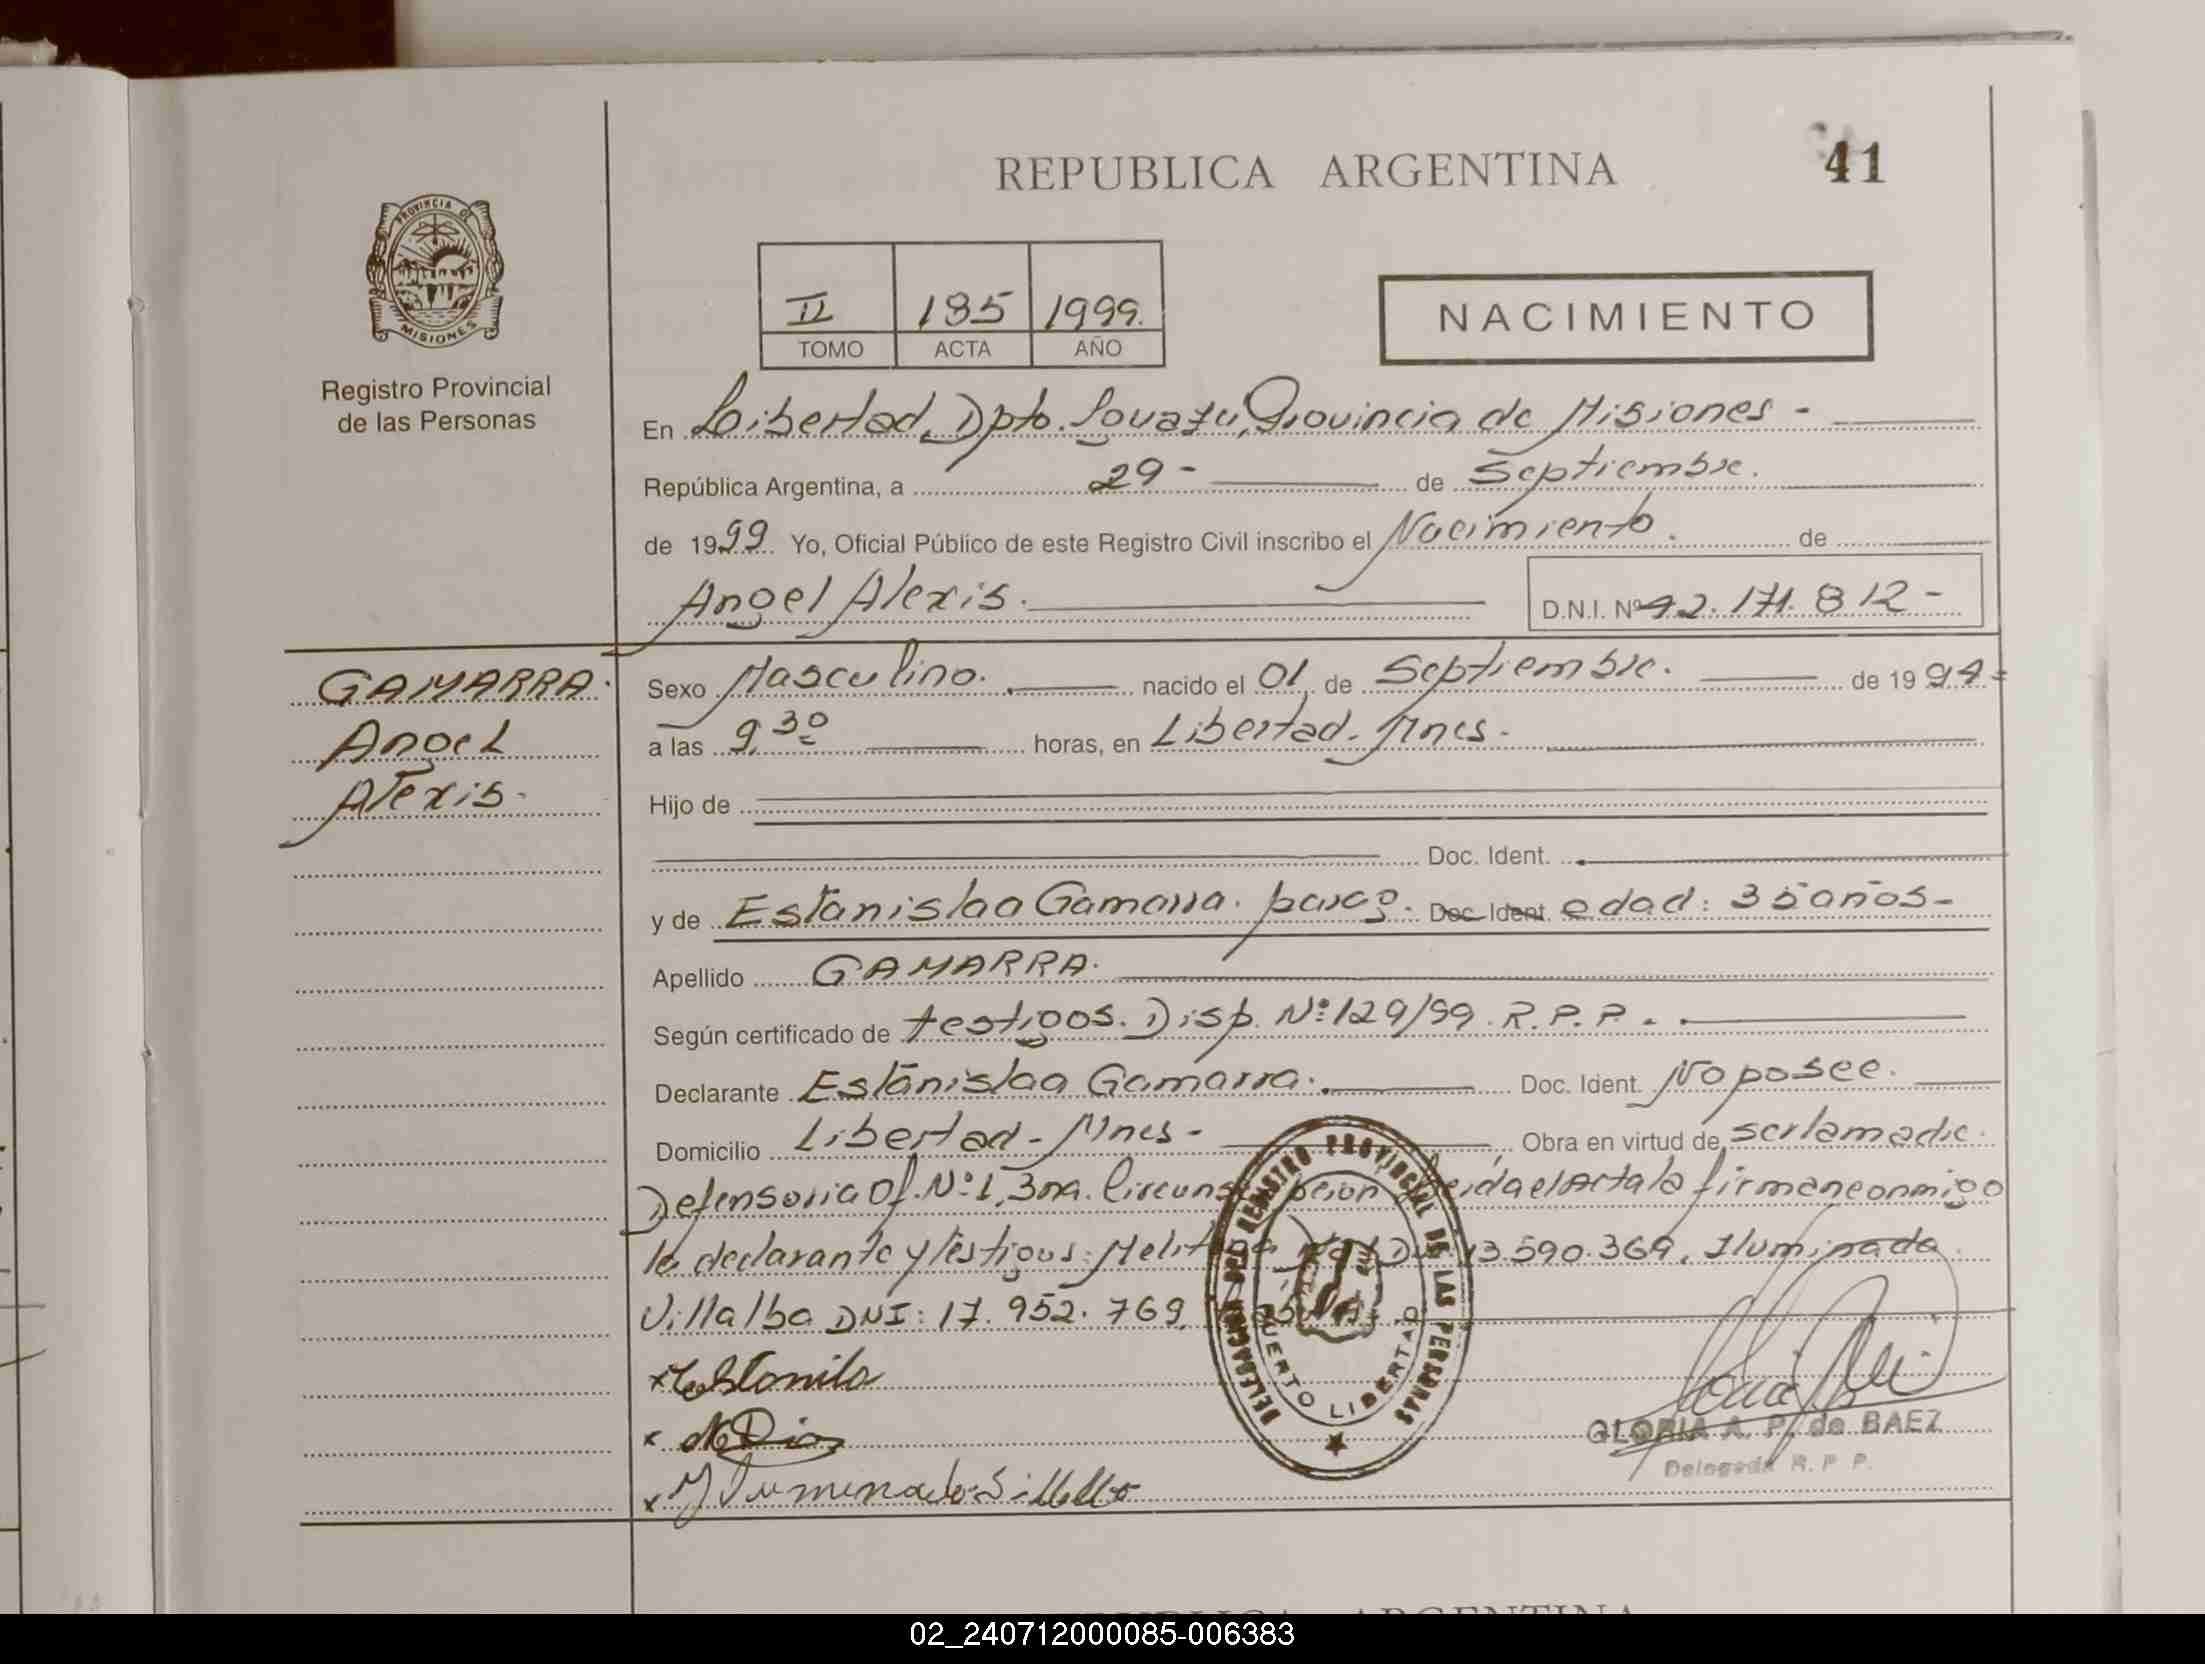 REPUBLICA ARGENTINA 41
PROVINCIA DE
MISIONES
Registro Provincial
de las Personas
II 185 1999.
TOMO ACTA AÑO
NACIMIENTO
En Libertad, Dpto. Iguazú, Provincia de Misiones -
República Argentina, a 29 - de Septiembre.
de 1999 Yo, Oficial Público de este Registro Civil inscribo el Nacimiento. de
Angel Alexis. D.N.I. Nº 42.171.812 -
GAMARRA.
Angel
Alexis.
Sexo Masculino. nacido el 01 de Septiembre. de 1994 =
a las 9,30 horas, en Libertad. Mnes -
Hijo de
Doc. Ident.
y de Estanislaa Gamarra. parag. Doc. Ident. edad: 35 años -
Apellido GAMARRA.
Según certificado de testigos. Disp. Nº 129/99. R.P.P.
Declarante Estanislaa Gamarra. Doc. Ident. No posee.
Domicilio Libertad - Mnes - Obra en virtud de ser la madre.
Defensoria Of. Nº 1, 3ra. Circunscripcion Leida el Acta la firman conmigo
la declarante y testigos: DNI 13.590.369, Iluminada
Villalba DNI: 17.952.769,
x Estanila
x
x
DELEGACION DEL REGISTRO PROVINCIAL DE LAS PERSONAS
PUERTO LIBERTAD
GLORIA A. P. de BAEZ
Delegada R. P. P.
REPUBLICA ARGENTINA
02_240712000085-006383